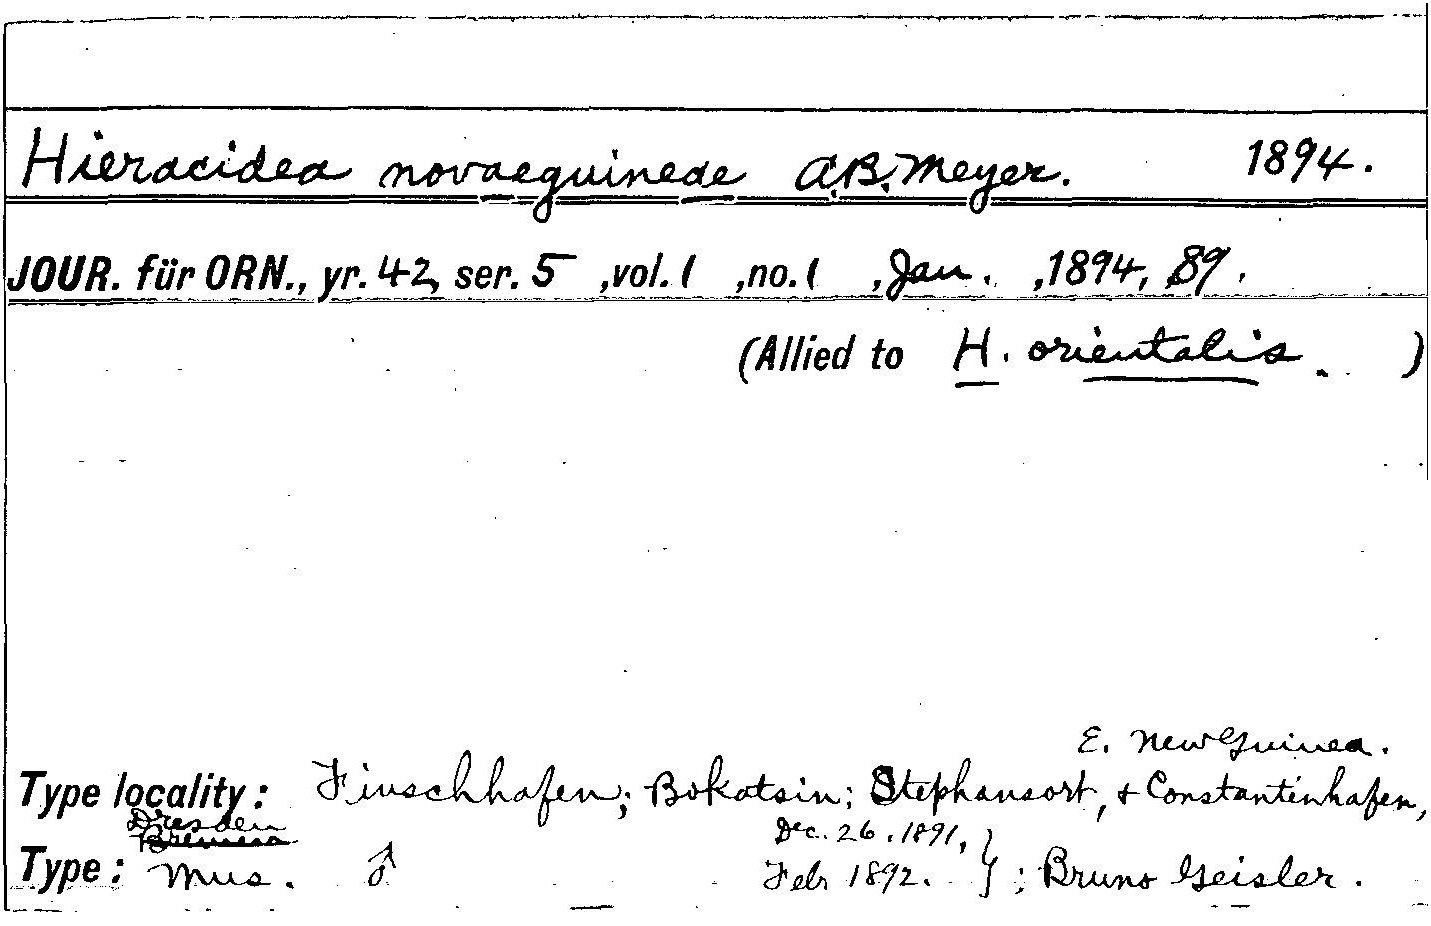 Hieracidea novaeguineae A.B. Meyer. 1894.
JOUR. für ORN., yr. 42, ser. 5 ,vol. 1 ,no. 1 ,Jan. ,1894, 89.
(Allied to H. orientalis. )
E. New Guinea.
Type locality: Finschhafen; Bokatsin; Stephansort, & Constantinhafen,
Dresden
Dec. 26. 1891,
Type: Mus. ♂ Feb 1892. } : Bruno Geisler.